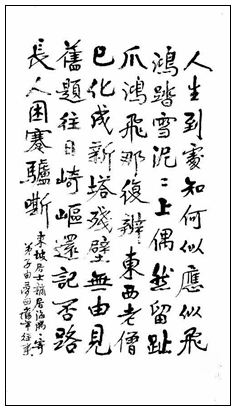 人生到處知何似應似飛
鴻踏雪泥々上偶然留趾
爪鴻飛那復辨東西老僧
已化成新塔殘壁無由見
舊題往日崎嶇還記否路
長人困蹇驢嘶
東坡居士謫居海隅寄
弟子由